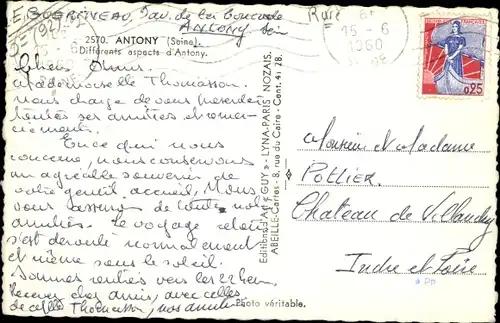 E. BUGRENEAU, 5 av. de la
ANTONY
2570. ANTONY (Seine).
Différents aspects d'Antony.
Chers Amis.
Mademoiselle Thomasson.
nous charge de vous présenter
toutes ses amitiés et remer-
ciements.
En ce qui nous
concerne, nous conservons
un agréable souvenir de
votre gentil accueil. Nous
vous assurons de toute notre
amitiés. Le voyage retour
s'est déroulé normalement
et même sous le soleil.
Sommes rentrés vers les 22 heures
Recevez chers amis, avec celles
de celle Thomasson, nos amitiés
Photo véritable.
Editions d'Art "GUY" - LYNA-PARIS NOZAIS.
ABEILLE-Cartes - 8, rue du Caire - Cent. 41 78.
15-6
1960
REPUBLIQUE FRANCAISE
0,25
Monsieur et Madame
POTTIER.
Chateau de Villandry
Indre et Loire